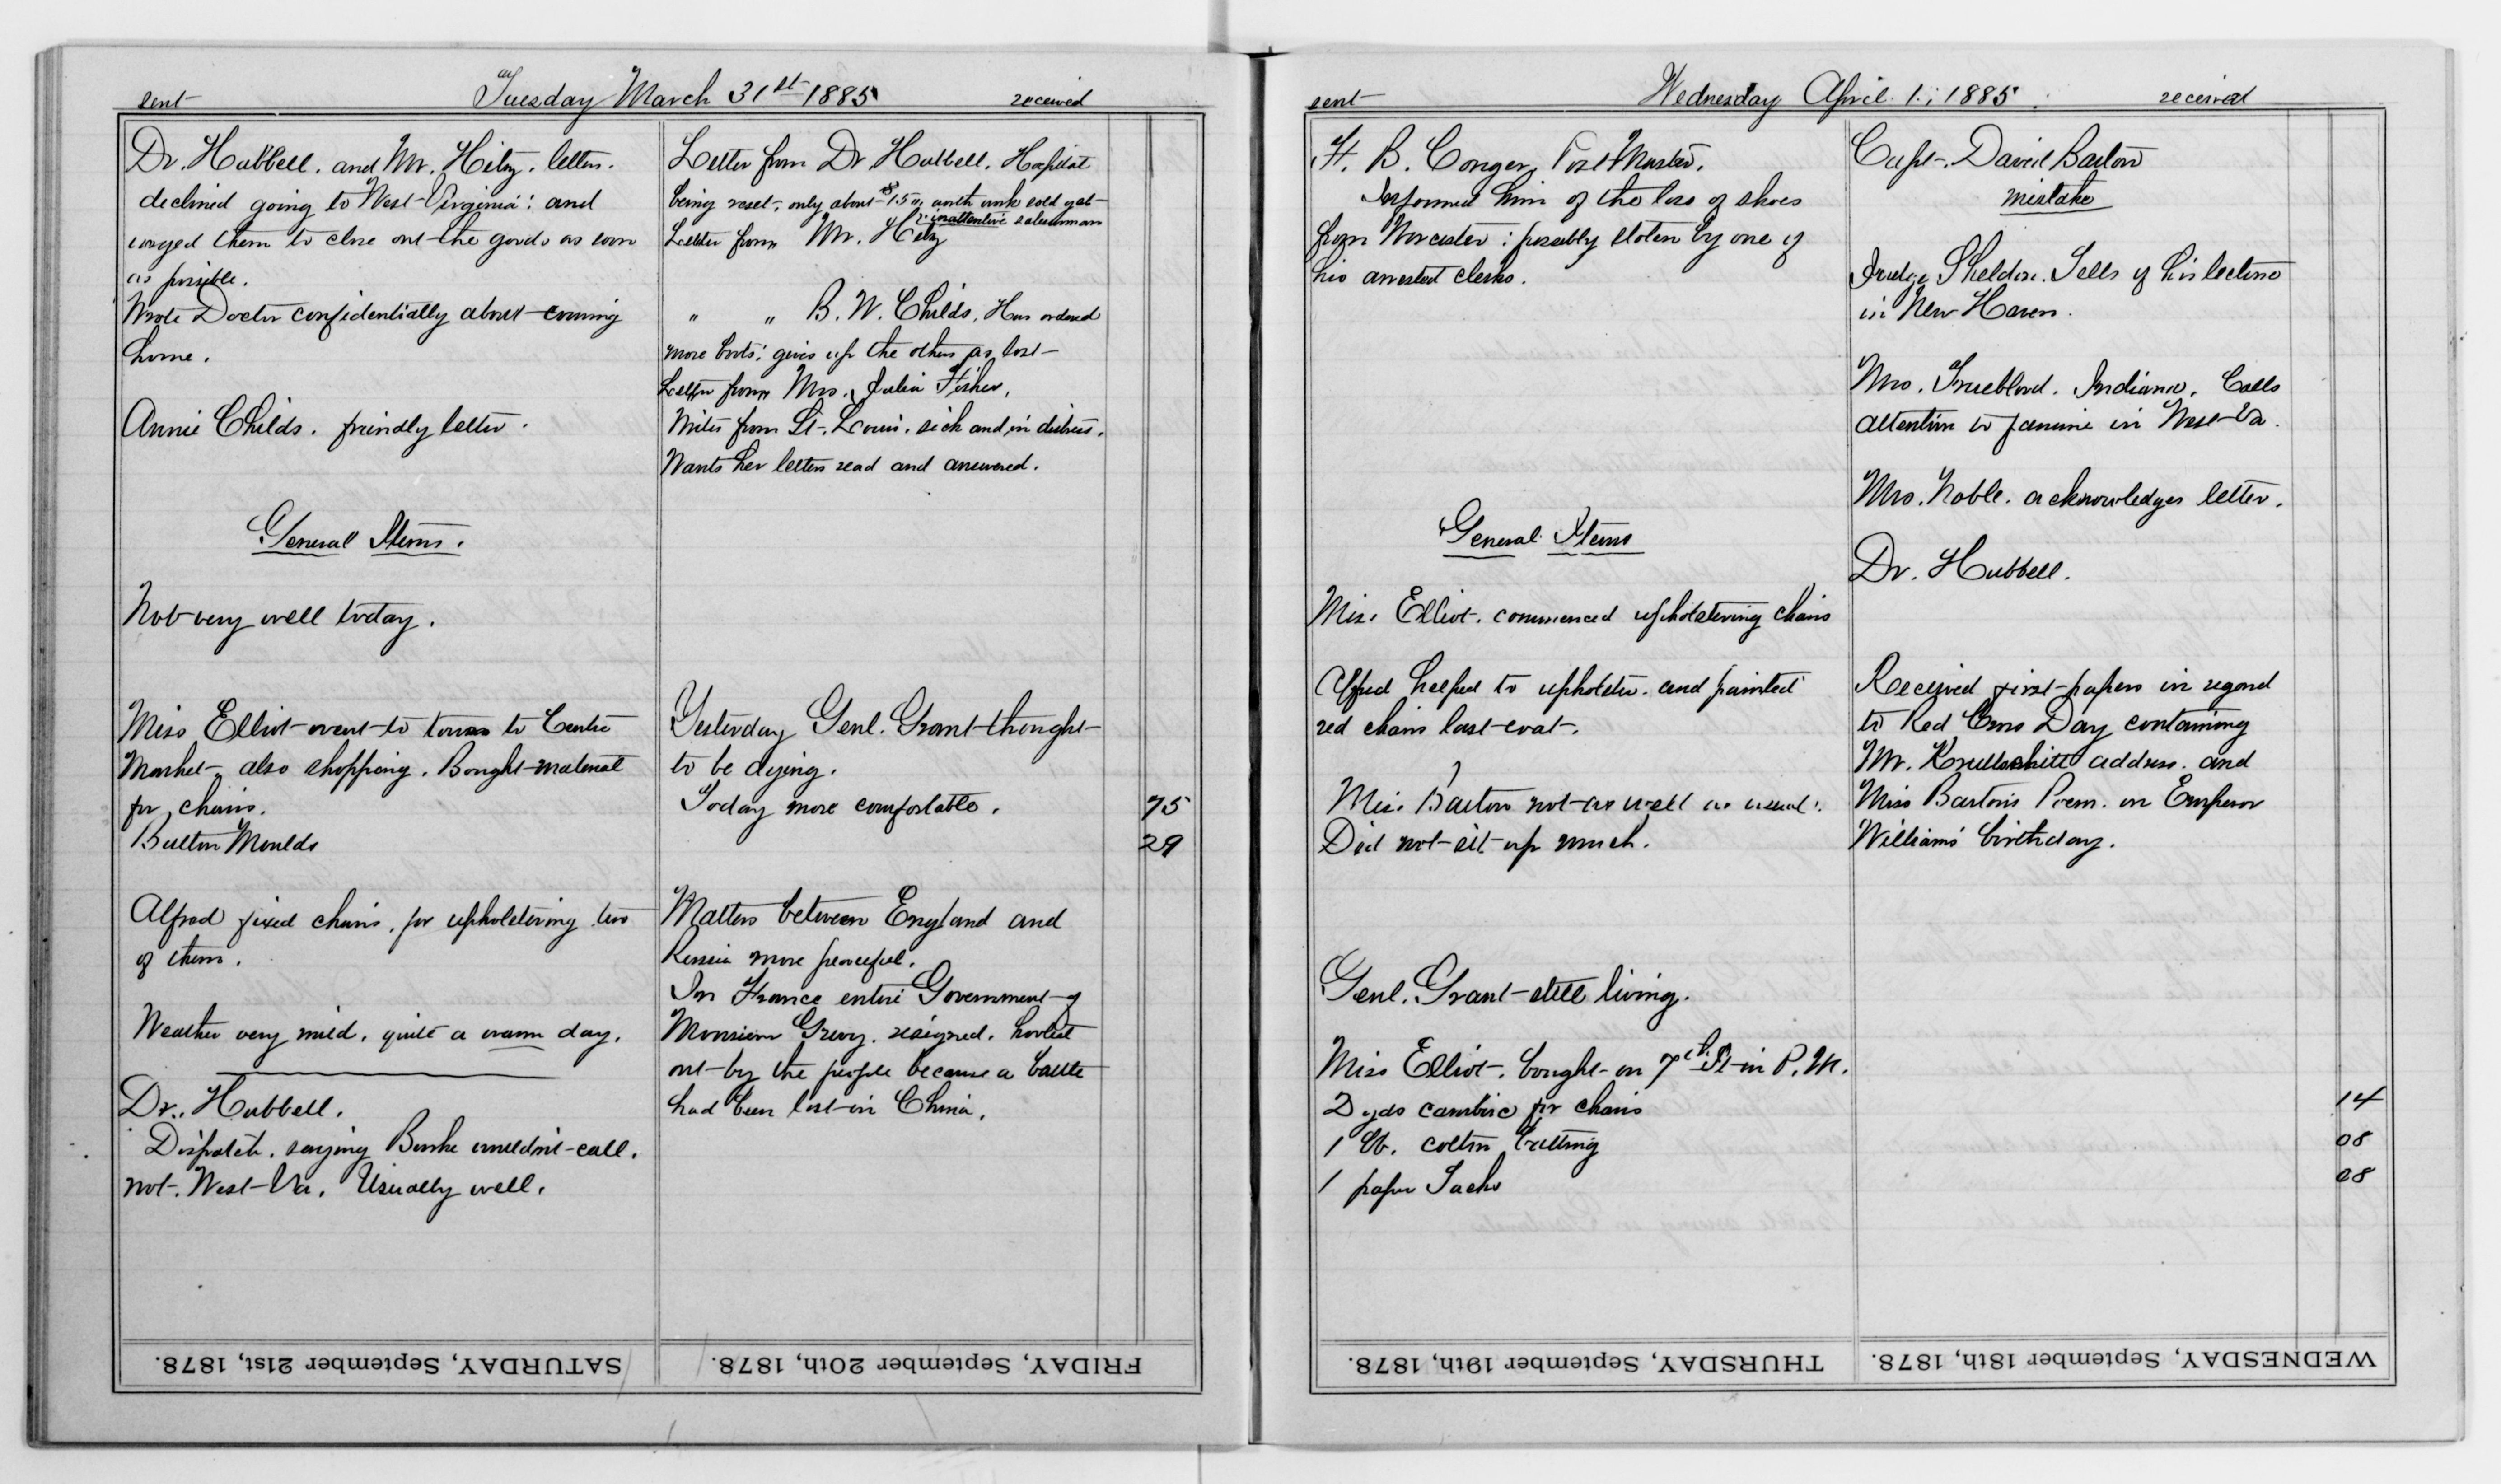 sent
Tuesday March 31st 1885
received
Dr. Hubbell. and Mr. Hitz. letters.
declined going to West-Virginia: and
urged them to close out the goods as soon
as possible.
Wrote Doctor confidentially about coming
home.
Annie Childs. friendly letter.
General Items.
Not very well today.
Miss Elliot went to town to Centre
Market, also shopping. Bought material
for chairs.
Button Moulds
Alfred fixed chairs, for upholstering two
of them.
Weather very mild, quite a warm day.
Dr. Hubbell.
Dispatch. saying Burke wouldn't call.
not. West-Va. Usually well.
Letter from Dr Hubbell. Hospital
being reset, only about $15 worth sold yet
Letter from Mr. Hitz inattentive salesman
" " B. W. Childs, Has ordered
more boots: gives up the others as lost
Letter from Mrs. Julia Fisher,
Writes from St. Louis. sick and in distress.
Wants her letters read and answered.
Yesterday Genl. Grant thought
to be dying.
Today more comfortable.
75
29
Matters between England and
Russia more peaceful.
In France entire Government of
Monsieur Grevy. resigned. hooted
out by the people because a battle
had been lost in China.
SATURDAY, September 21st, 1878.
FRIDAY, September 20th, 1878.
sent
Wednesday April 1.; 1885
received
F. B. Conger, Post Master.
Informed him of the loss of shoes
from Worcester: possibly stolen by one of
his arrested clerks.
General Items
Miss Elliot. commenced upholstering chairs
Alfred helped to upholster. and painted
red chairs last coat.
Miss Barton not as well as usual.
Did not sit up much.
Genl. Grant still living.
Miss Elliot. bought on 7th St in P.M.
2 yds cambric for chairs
1 lb. cotton batting
1 paper Tacks
Capt. David Barton
mistake
Judge Sheldon. Tells of his lecture
in New Haven.
Mrs. Trueblood. Indiana. Calls
attention to famine in West-Va.
Mrs. Noble. acknowledges letter.
Dr. Hubbell.
Received first papers in regard
to Red Cross Day containing
Mr. address. and
Miss Barton's Poem. on Emperor
William's birthday.
14
08
08
THURSDAY, September 19th, 1878.
WEDNESDAY, September 18th, 1878.